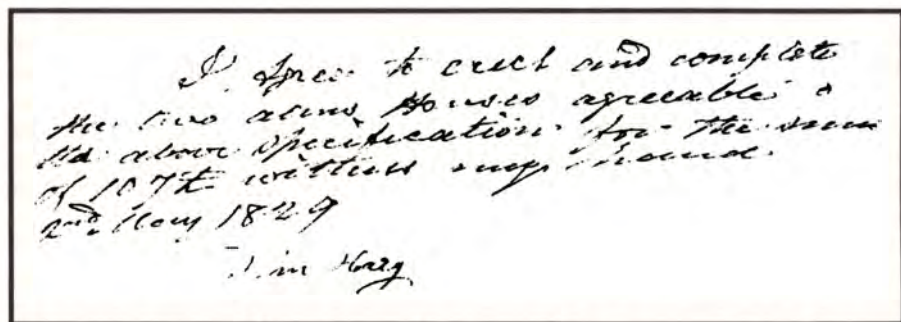 I agree to erect and complete
the two Houses agreeable
above specification for the sum
of 107£ witness my hand
2nd May 1829